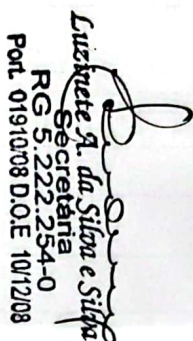 Luzinete A. da Silva e Silva
Secretária
RG 5.222.254-0
Port. 01910/08 D.O.E 10/12/08